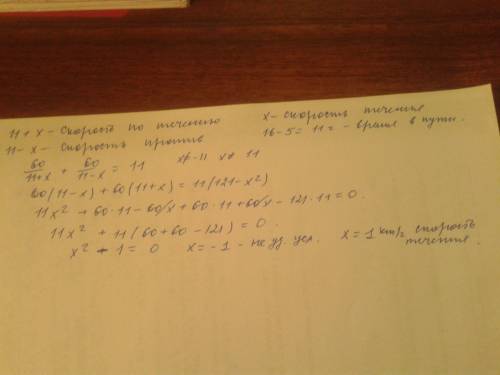 11 + x - скорость по течению
x - скорость течения
11 - x - скорость против
16 - 5 = 11 - время в пути.
60/(11+x) + 60/(11-x) = 11 x≠-11 x≠11
60(11-x)+60(11+x) = 11(121-x²)
11x² + 60·11 - 60x + 60·11 + 60x - 121·11 = 0.
11x² + 11(60+60-121) = 0.
x² - 1 = 0 x = -1 - не уд. усл. x = 1 км/ч скорость
течения.